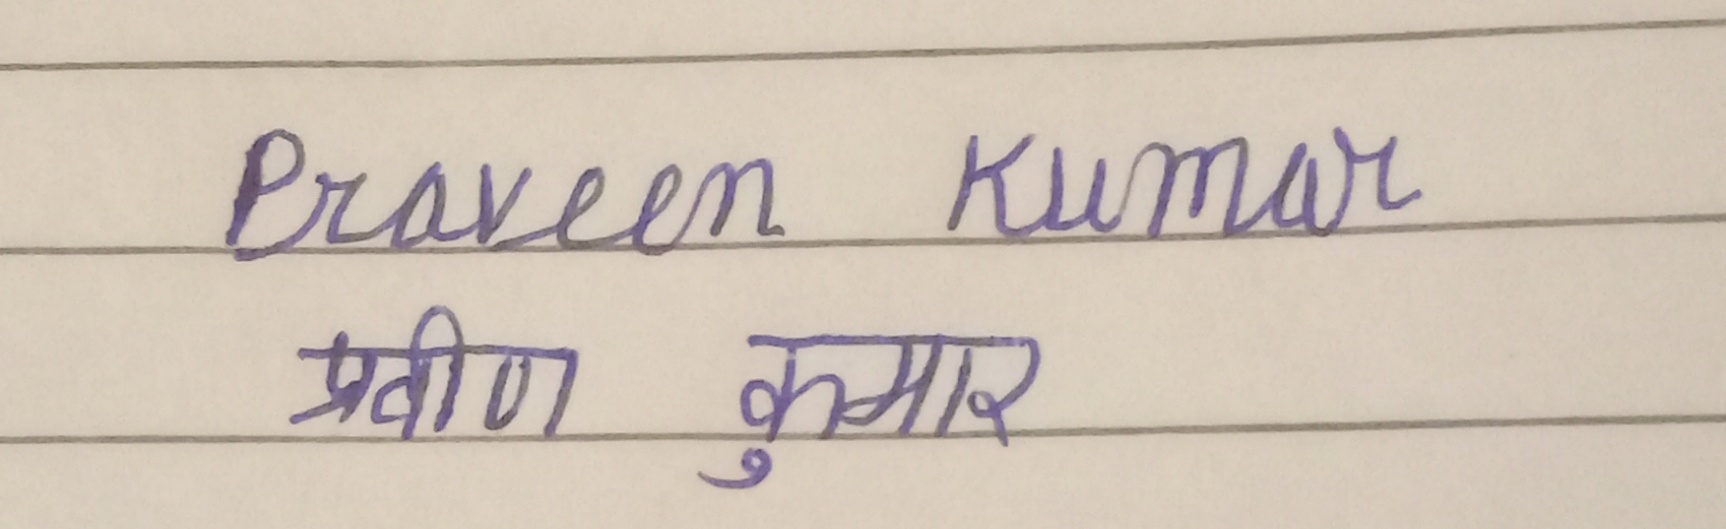 Praveen Kumar
प्रवीण कुमार